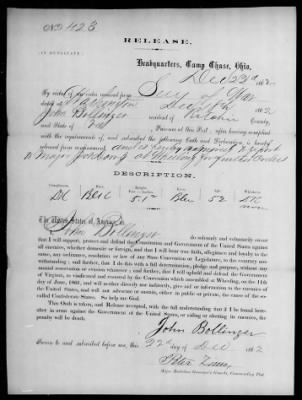 No 428
RELEASE.
[IN DUPLICATE.]
Headquarters, Camp Chase, Ohio,
Dec 22d 1862
By order of the order received from Secy of War
dated at Washington Dec 1862
John Bollinger resident of County,
and State of Va Prisoner at this Post, after having complied
with the requirements of, and subscribed the following Oath and Parole, is hereby
released from imprisonment, and ordered to report
to Major at Wheeling for further Orders
DESCRIPTION.
Complexion. Hair. Height. Eyes. Age. Whiskers.
Dk Blk 5.1 Blue 52
The United States of America,
I John Bollinger do solemnly and voluntarily swear
that I will support, protect and defend the Constitution and Government of the United States
against all enemies, whether domestic or foreign, and that I will bear true faith, allegiance and loyalty to the
same, any ordinance, resolution or law of any State Convention or Legislature, to the contrary not-
withstanding; and further, that I do this with a full determination, pledge and purpose, without any
mental reservation or evasion whatsoever; and further, that I will uphold and defend the Government
of Virginia, as vindicated and restored by the Convention which assembled at Wheeling, on the 11th
day of June, 1861, and that I will neither directly nor indirectly, give any aid or information to the
of the United States, and will oppose any adverse or enemy, either in public or private, the cause of the so-
called Confederate States. So help me God.
This Oath is taken, and Release accepted, with the full understanding that if I be found here-
after in arms against the Government of the United States, or aiding or abetting its enemies, the
penalty will be death.
John Bollinger
Sworn to and subscribed before me, this 22d day of Dec 1862
Peter Zinn,
Major Battalion Governor's Guards, Commanding Post